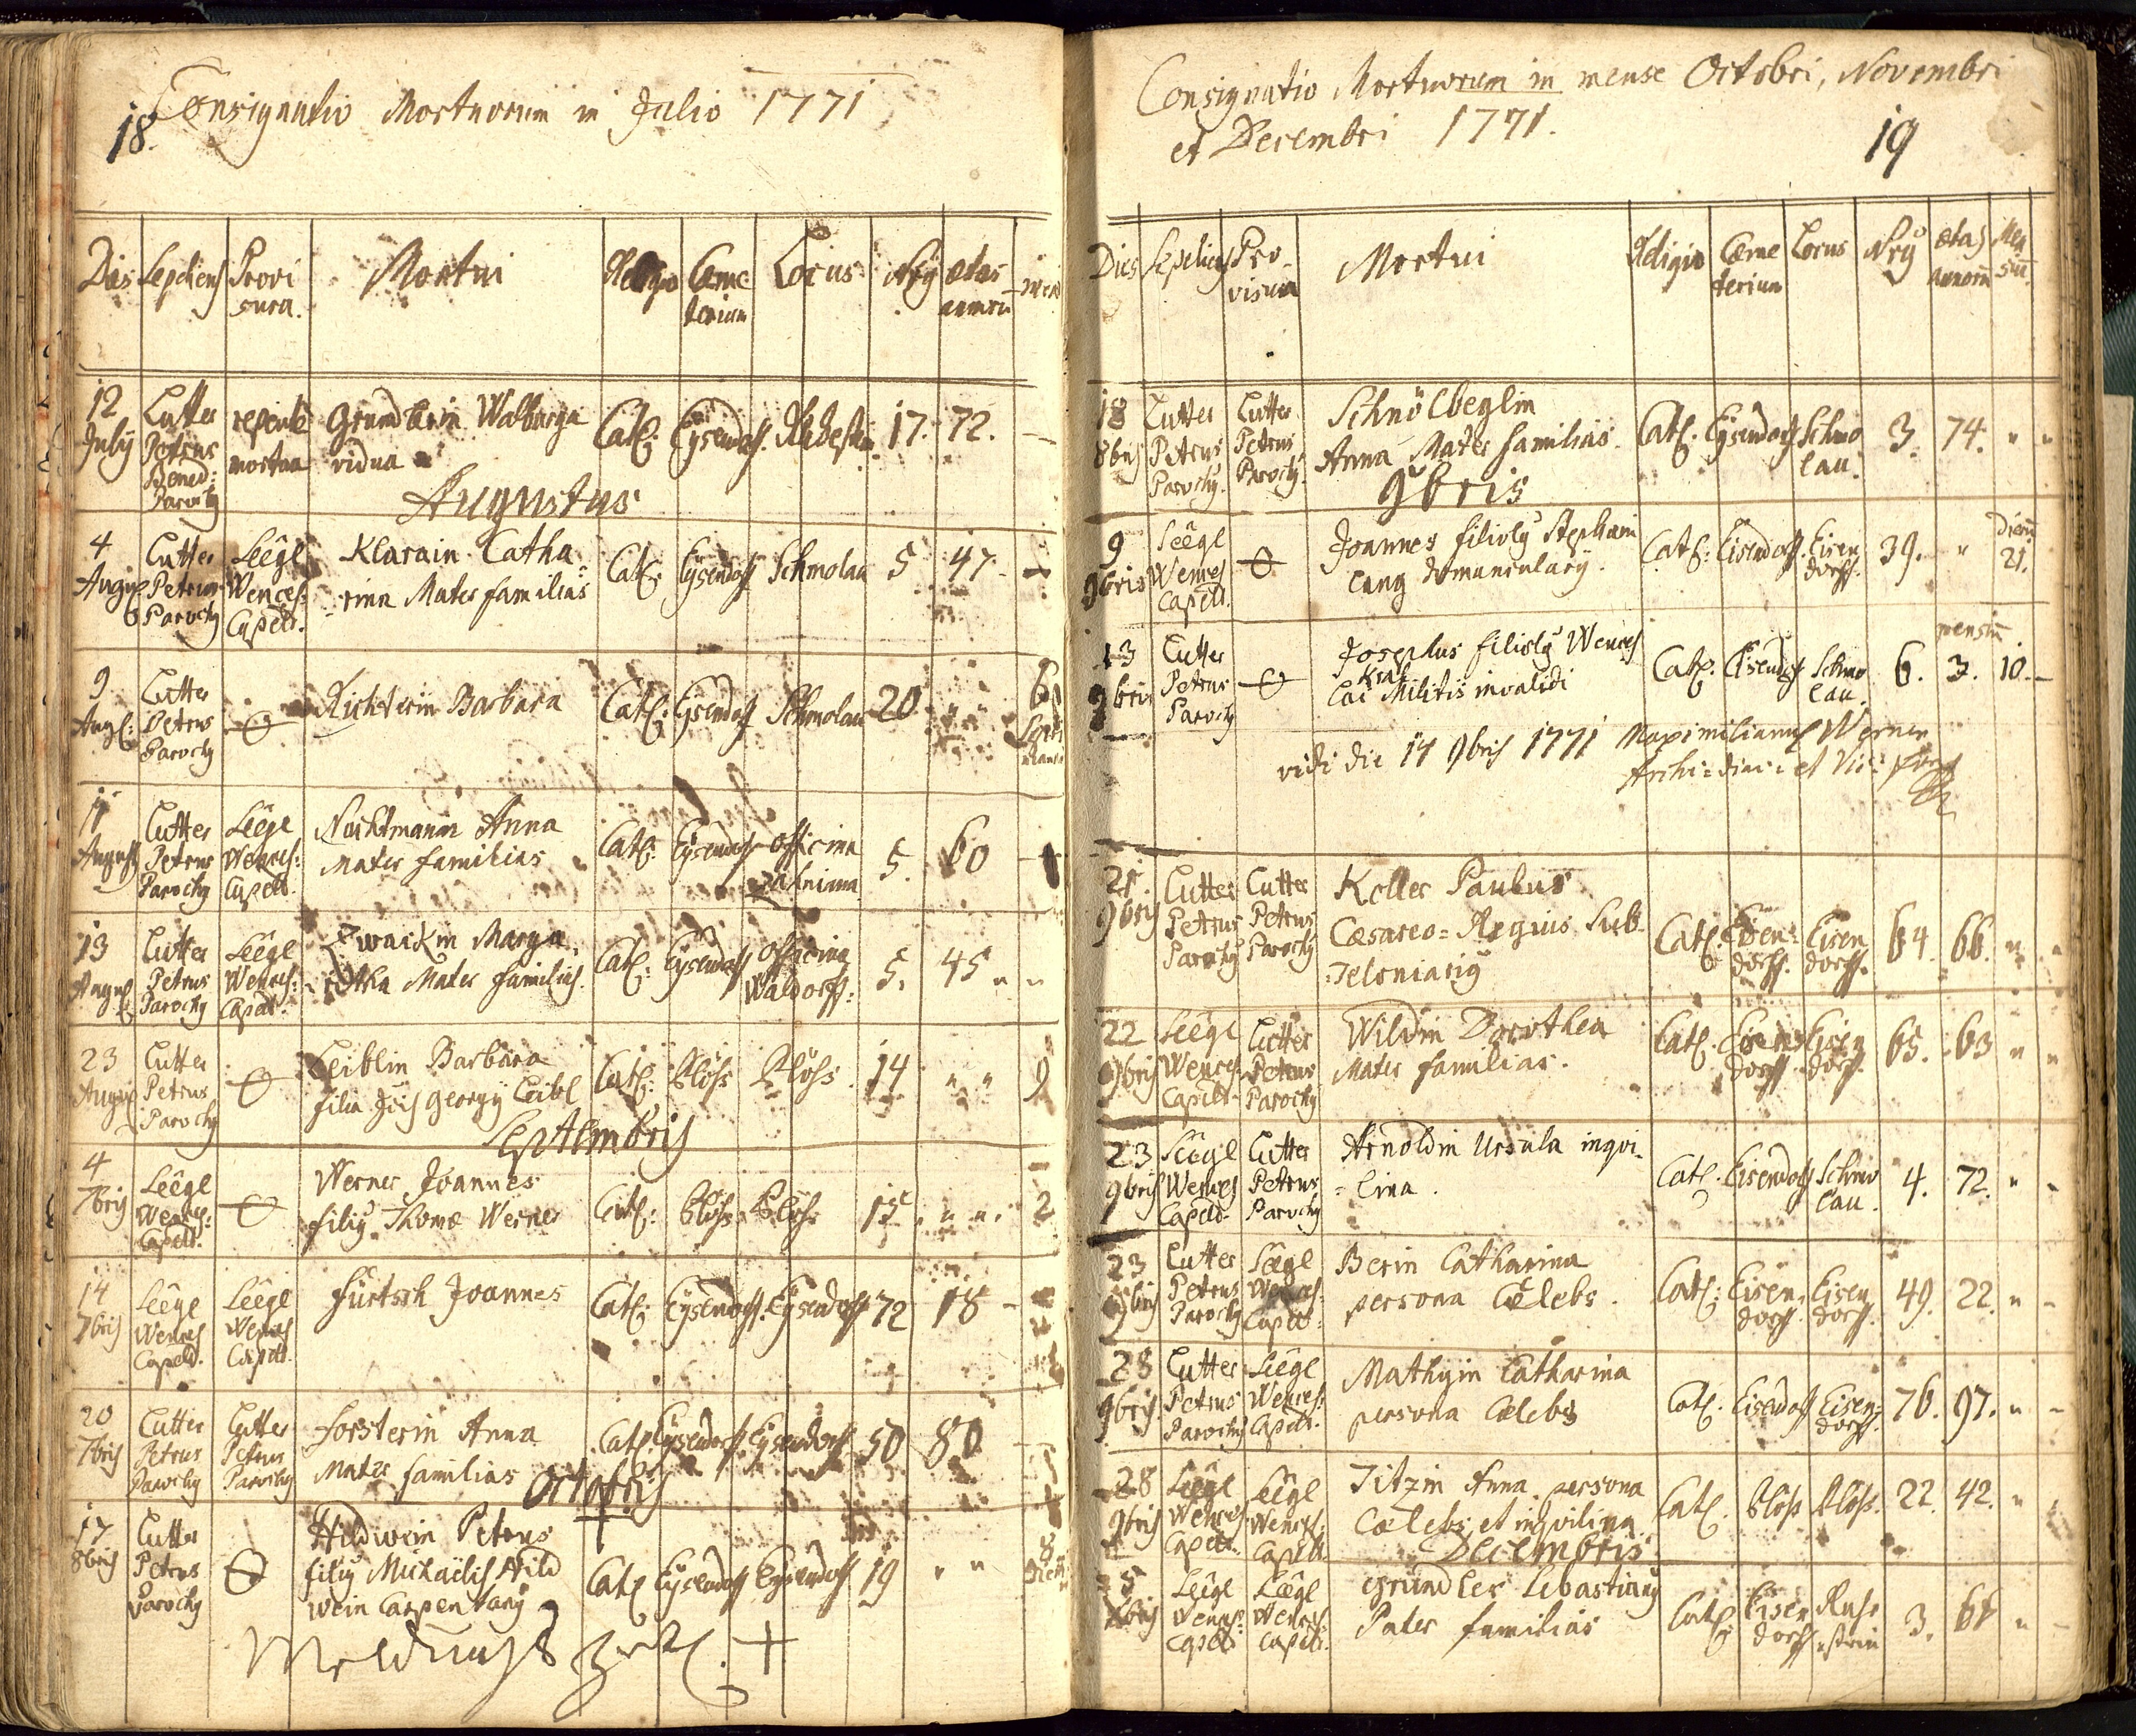 18.
Consignatio Mortuorum in Julio 1771
Dies Sepeliens Provisura. Mortui Religio Cœmeterium Locus Nrꝰ ætas annorū
12 July Cutter Petrus Bened: Parochꝰ repente mortua Grundlerin Walburga vidua Cath: Eysendorf. 17. 72. —
Augustus
4 Aug Cutter Petrus Parochꝰ Leêgl Wences: Capell. Klarain Catharina Mater familias Cath: Eysendorf Schmolau 5 47. —
9 Aug: Cutter Petrus Parochꝰ Richterin Barbara Cath: Eysendorf Schmolau 20 " "
11 August Cutter Petrus Parochꝰ Leêgl Wences: Capell. Nachtmanin Anna Mater familias Cath: Eysendorf officina 5. 60
13 Aug Cutter Petrus Parochꝰ Leêgl Wences: Capell. Zwackin Margaretha Mater familias. Cath: Eysendorf officina Waldorff: 5. 45 " "
23 Aug Cutter Petrus Parochꝰ Leiblin Barbara filia Georgy Leibl Cath: Plöss Plöss. 14 " " 9
Septembris
4 7bris Leêgl Wences: Capell. Werner Joannes filiꝰ Thomæ Werner Cath: Plöss Plöss 15 " " 2
14 7bris Leêgl Wences Capell. Leêgl Wences Capell. Fürtsch Joannes Cath: Eysendorf. Eysendorf 72 18 —
20 7bris Cutter Petrus Parochꝰ Cutter Petrus Parochꝰ Forsterin Anna Mater familias Cath. Eysendorf. Eysendorf 50 80
Octobris
17 8bris Cutter Petrus Parochꝰ Hildwein Petrus filiꝰ Michaëlis Hildwein Carpentary Cath Eysendorf Eysendorf 19 " " 8
Consignatio Mortuorum in mense Octobri, Novembri
et Decembri 1771.
19
Dies Sepeliens Provisura Mortui Religio Cœmeterium Locus Nrꝰ ætas annorū Mensiū
18 8bris Cutter Petrus Parochꝰ. Cutter Petrus Parochꝰ Schnölbeglin Anna Mater familias. Cath. Eysendorf Schmolau. 3. 74. " "
9bris
9 9bris Leêgl Wences Capell. Joannes filiolꝰ Stephani Lang domuncularÿ. Cath: Eisendorf. Eisendorff. 39. " dierū 21.
13 9bris Cutter Petrus Parochꝰ Josephus filiolꝰ Wences Militis invalidi Cath. Eisendorf Schmolau. 6. mensiū 3. 10. —
vidi die 14 9bris 1771 Maximilianus Werner
21. 9bris Cutter Petrus Parochꝰ Cutter Petrus Parochꝰ Keller Paulus Cæsareo=Regius Sub=Teloniariꝰ Cath. Eisendorff. Eisendorff. 64. 66. " "
22 9bris Leêgl Wences. Capell. Cutter Petrus Parochꝰ Wildin Dorothea Mater familias. Cath. Eisendorff Eisendorff. 65. 63 " "
23 9bris Leêgl Wences Capell. Cutter Petrus Parochꝰ Arnoldin Ursula inqvi=lina. Cath. Eisendorf Schmolau. 4. 72. " "
23 9bris Cutter Petrus Parochꝰ Leêgl Wences. Capell. Berin Catharina persona Cælebs. Cath: Eisendorff. Eisendorff. 49. 22. " "
28 9bris Cutter Petrus Parochꝰ Leêgl Wences: Capell. Mathyin Catharina persona Cælebs Cath. Eisendorf Eisendorff. 76. 97. " "
28 9bris Leêgl Wences. Capell. Leêgl Wences. Capell. Titzin Anna persona Cælebs et inqvilina Cath. Plöss Plöss. 22. 42. "
Decembris
5 Leêgl Wences: Capell Leêgl Wences. Capell. Gründler Sebastianꝰ Pater familias Cath: Eisendorff 3. " "